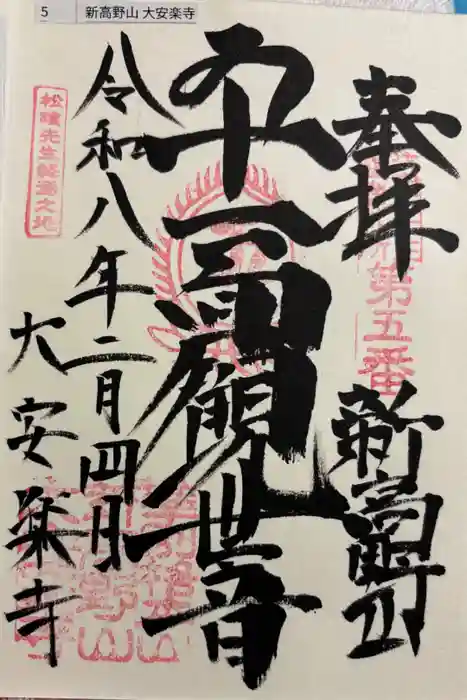 5 新高野山 大安楽寺
奉拝
第五番
新高野山
十一面観世音
令和八年二月四日
大安楽寺
松陰先生終焉之地